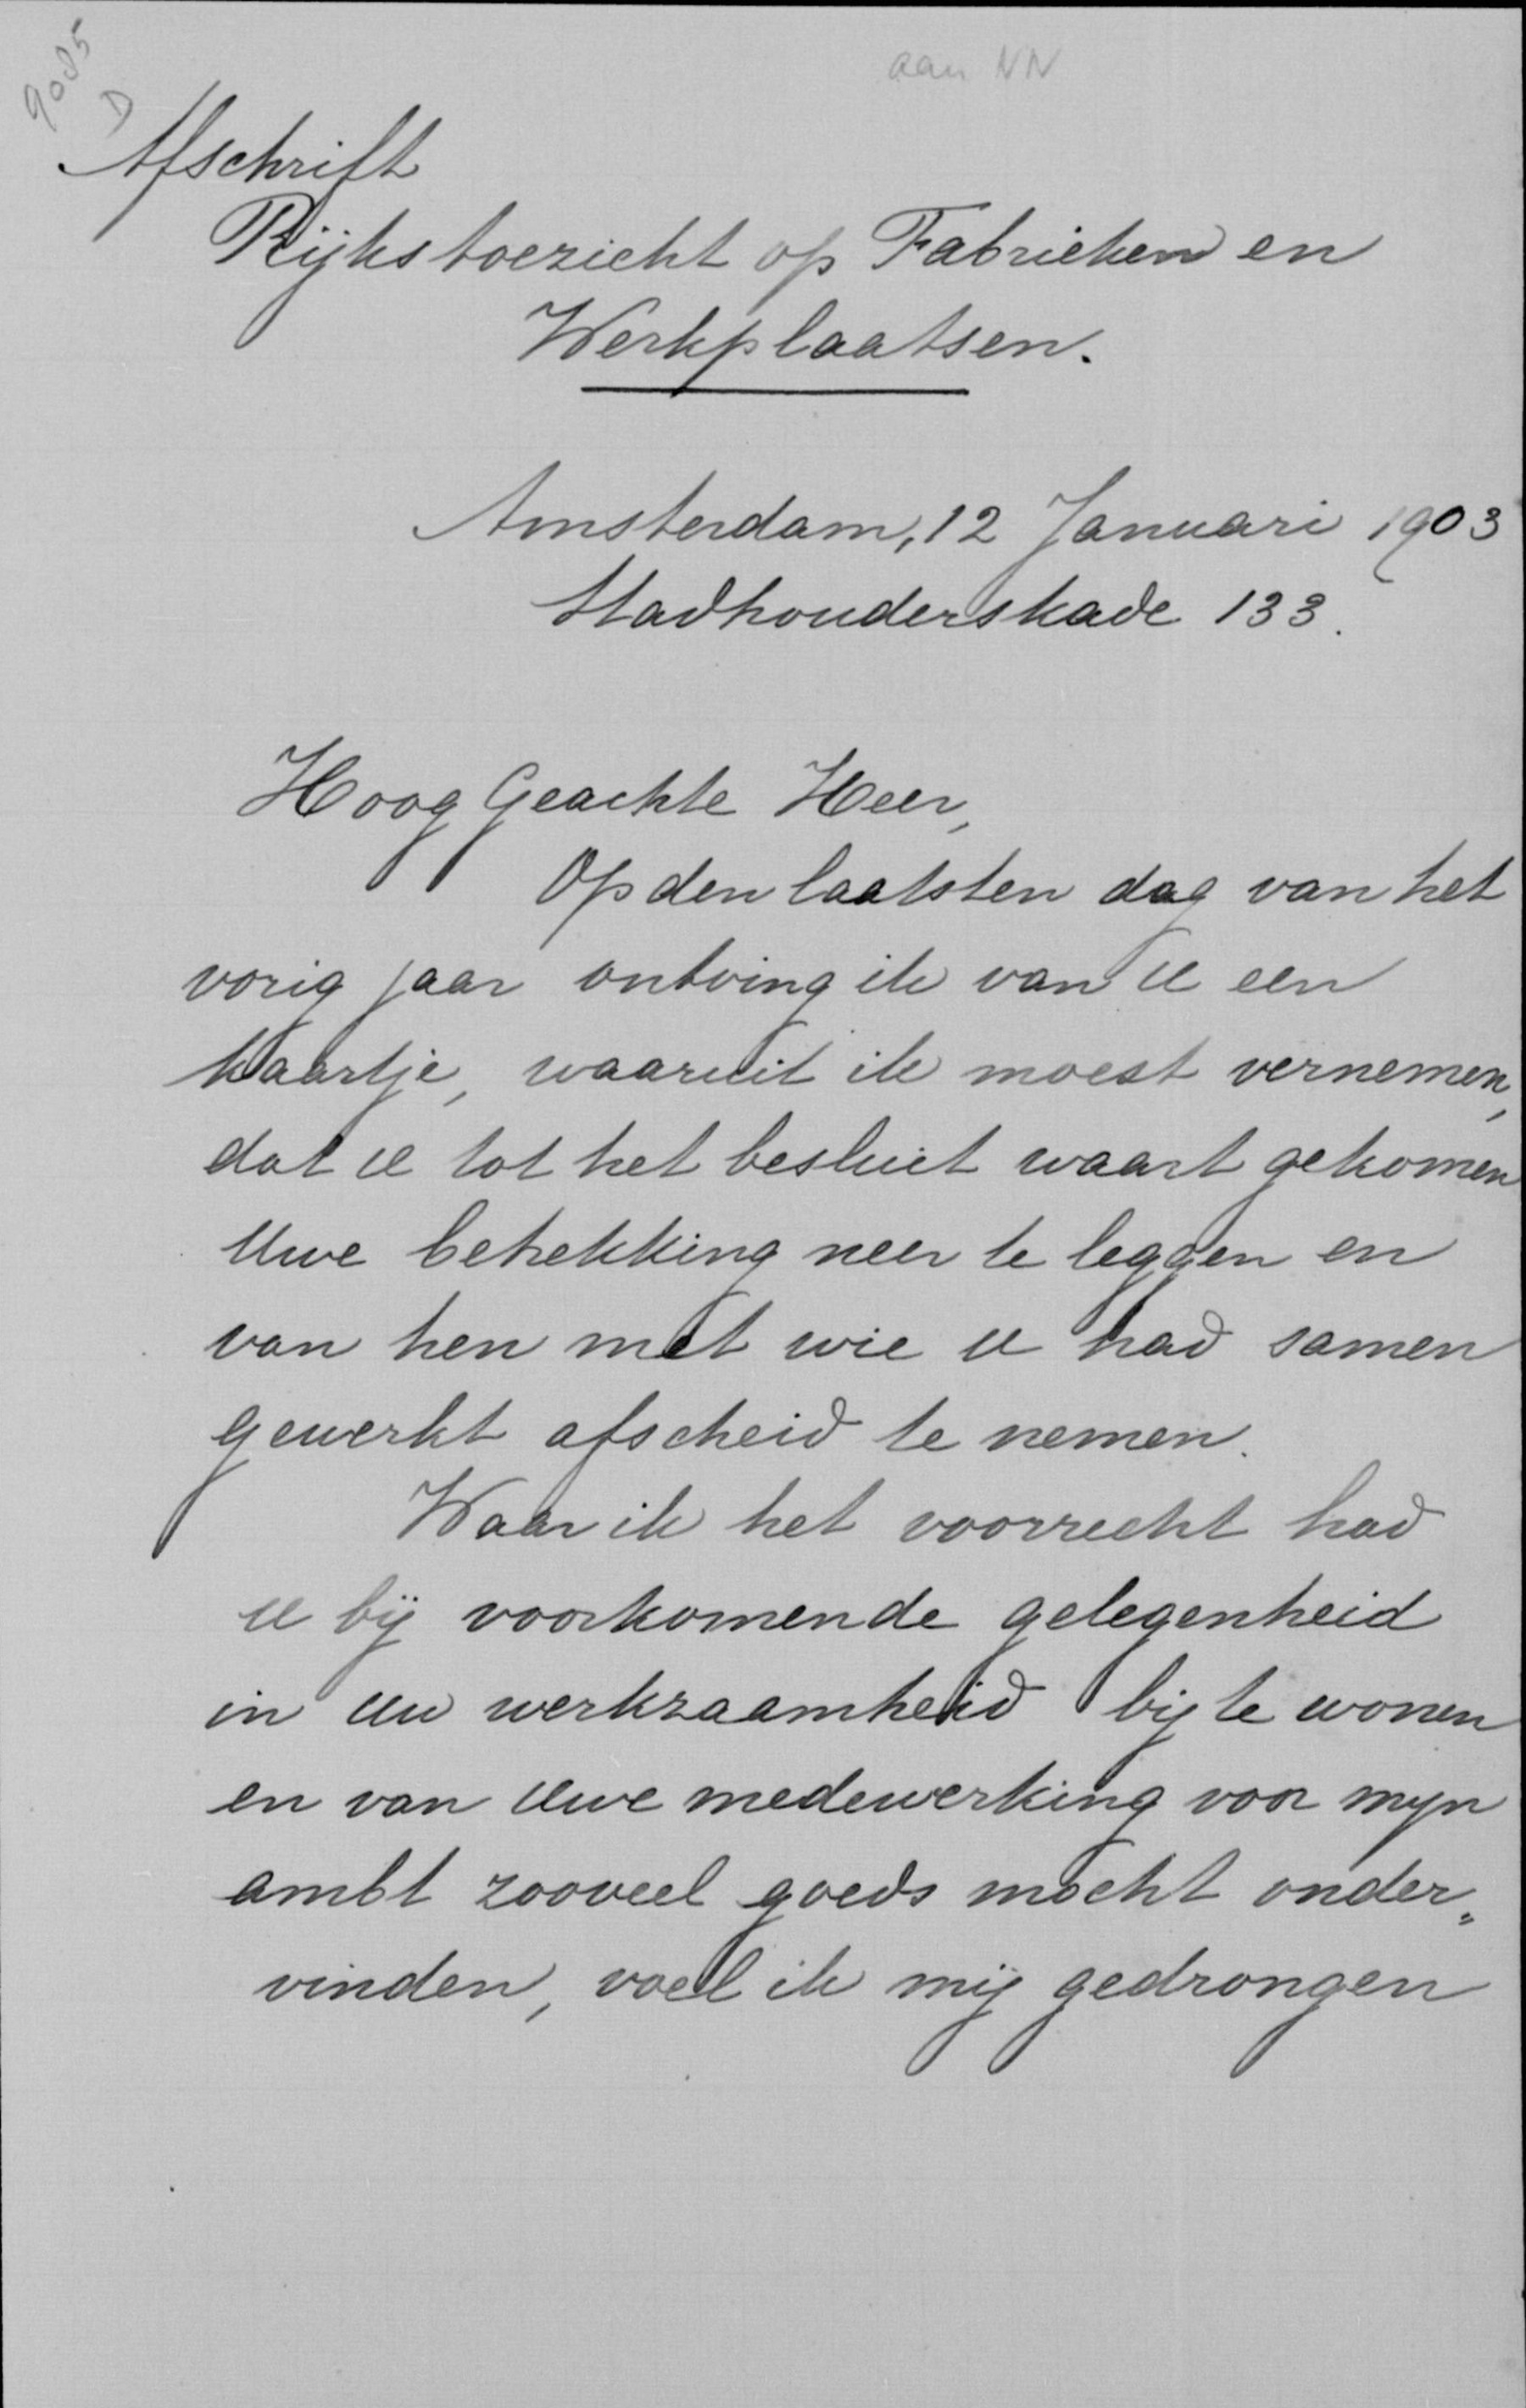 9085
D
aan NN
Afschrift
Rijkstoezicht op Fabrieken en
Werkplaatsen.
Amsterdam, 12 Januari 1903
Stadhouderskade 133.
Hoog Geachte Heer,
Op den laatsten dag van het
vorig jaar ontving ik van U een
kaartje, waaruit ik moest vernemen,
dat U tot het besluit waart gekomen
Uwe betrekking neer te leggen en
van hen met wie U had samen
gewerkt afscheid te nemen.
Waar ik het voorrecht had
U bij voorkomende gelegenheid
in Uw werkzaamheid bij te wonen
en van Uwe medewerking voor mijn
ambt zooveel goeds mocht onder„
vinden, voel ik mij gedrongen